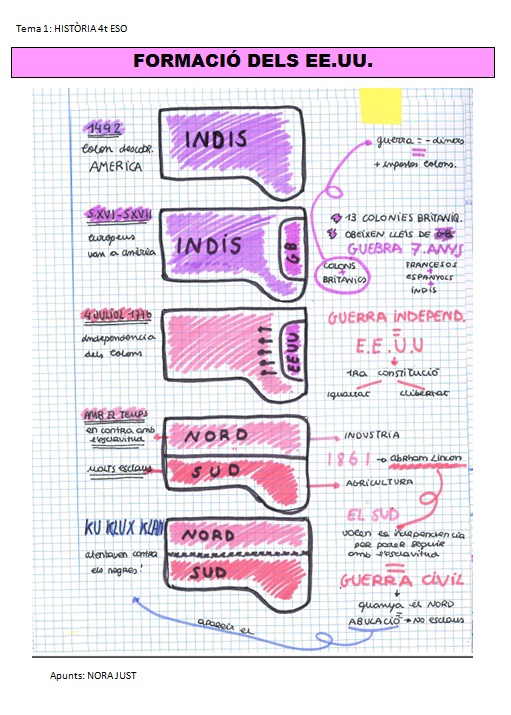 Tema 1: HISTÒRIA 4t ESO
FORMACIÓ DELS EE.UU.
1492
Colon descobr.
AMERICA
INDIS
guerra = - diners
=
+ impostos colons.
S.XVI-SXVII
Europeus
van a amèrica
INDIS
GB
13 COLONIES BRITANIQ.
OBEIXEN LLEIS DE GB
GUERRA 7 ANYS
COLONS
+
BRITANICS
FRANCESOS
+
ESPANYOLS
+
INDIS
4 JULIOL 1776
independencia
dels colons
EEUU
GUERRA INDEPEND.
=
E.E.U.U
1RA constitució
igualtat
llibertat
AMB EL TEMPS
en contra amb
l'esclavitud
molts esclaus
NORD
SUD
INDUSTRIA
1861 → Abraham Lincon
AGRICULTURA
KU KLUX KLAN
atentaven contra
els negres!
NORD
SUD
EL SUD
volen es independencia
per poder seguir
amb l'esclavitud
=
GUERRA CIVIL
guanya el NORD
=
ABULACIÓ → NO esclaus
apareix el
Apunts: NORA JUST